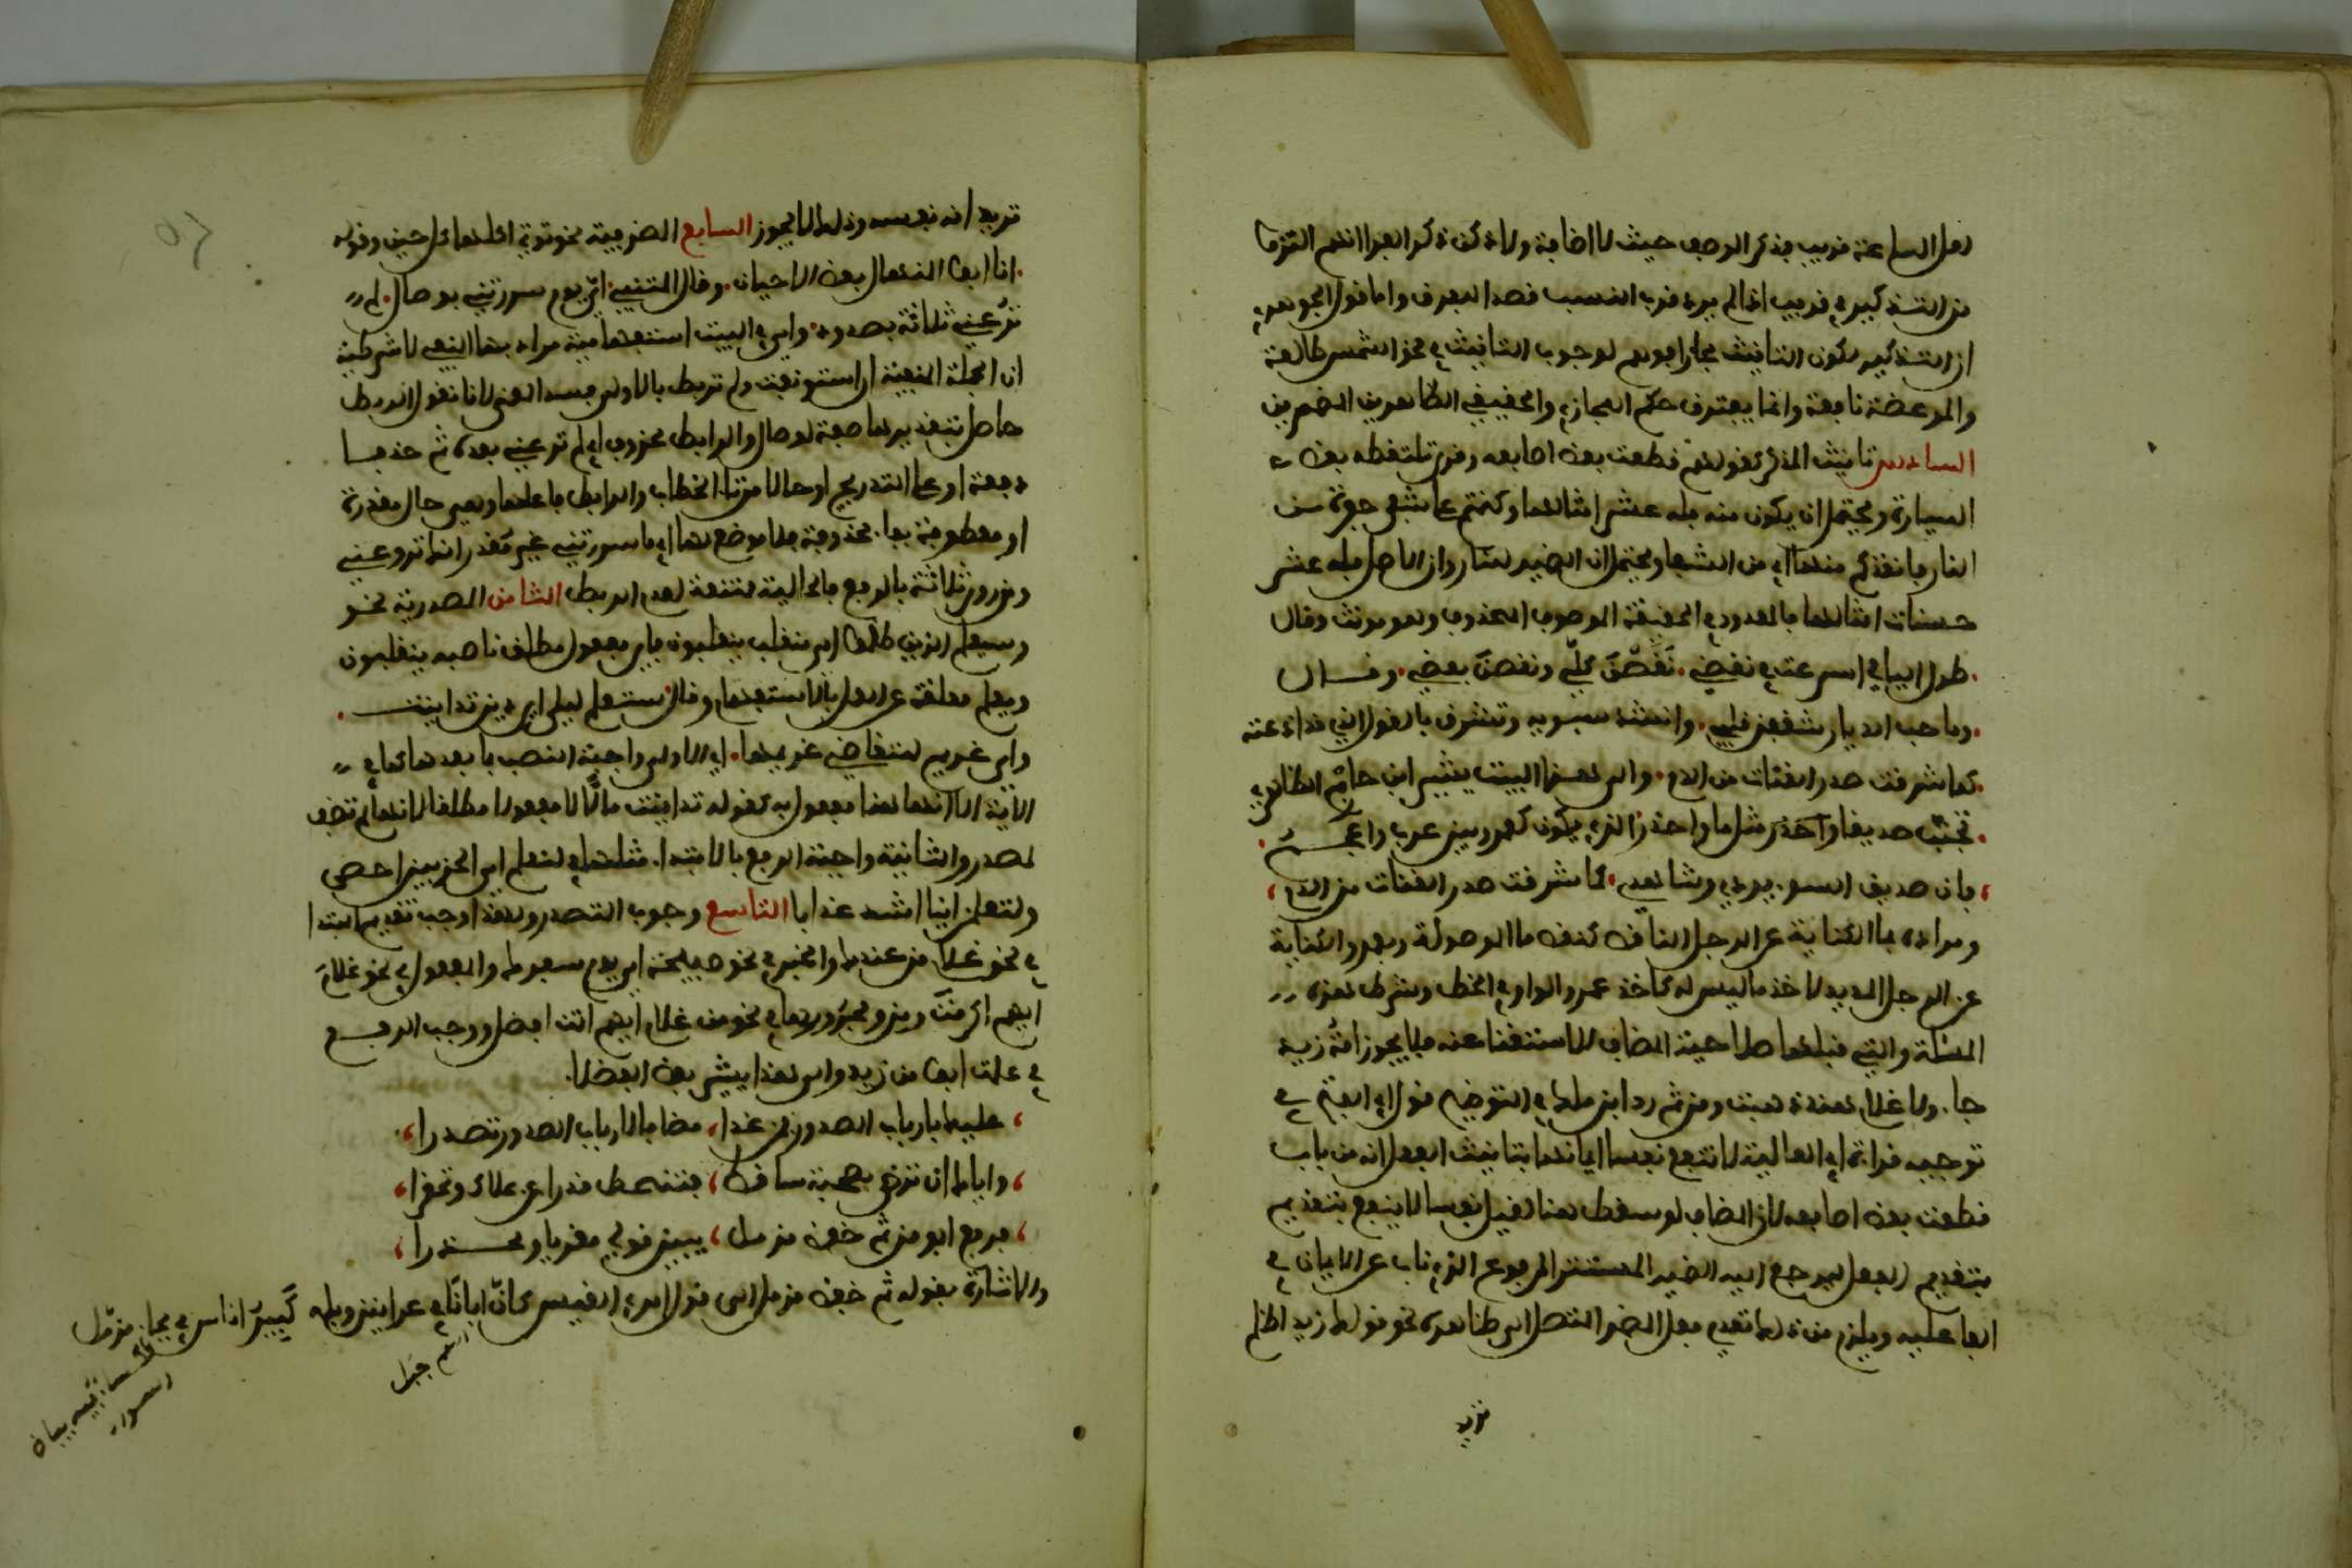 لعل الساعة قريب فذكر الوصف حيث لا اضافة ولاكن ذكر الفرا انهم التزموا
من التذكير في قريب اذا لم يرد قرب النسب قصدا للفرق واما قول الجوهري
ان التذكير لكون التانيث مجازيا فوهم لوجوب التانيث في نحو الشمس طالعة
والموعظة نافعة وانما يفترق حكم المجازي والحقيقي الظاهرين لا المضمرين
السادس تانيث المذكر كقولهم قطعت بعض اصابعه وقرئ تلتقطه بعض
السيارة ويحتمل ان يكون منه فله عشر امثالها وكنتم على شفى حفرة من
النار فانقذكم منها اي من الشفا ويحتمل ان الضمير للنار وان الاصل فله عشر
حسنات امثالها فالمعدود في الحقيقة الموصوف المحذوف وهو مونث وقال
طول الليالي اسرعت في نقضي نقضن كلي ونقضن بعضي وقال
وما حب الديار شغفن قلبي وانشد سيبويه وتشرق بالقول الذي قد اذعته
كما شرقت صدر القناة من الدم والى هذا البيت يشير ابن حازم الظاهري
تجنب صديقا مثل ما واحذر الذي يكون كعمرو بين عرب واعجم
فان صديق السوء يزري وشاهدي كما شرقت صدر القناة من الدم
ومراده بما الكناية عن الرجل الناقص كنقص ما الموصولة وبعمرو الكناية
عن الرجل المريد لاخذ ما ليس له كاخذ عمرو الواو في الخط وشرط هذه
المسئلة والتي قبلها صلاحية المضاف للاستغناء عنه فلا يجوز امة زيد
جا ولا غلام هند ذهبت ومن ثم رد ابن مالك في التوضيح قول ابي الفتح في
توجيه قراءة ابي العالية لا تنفع نفسا ايمانها بتانيث الفعل انه من باب
قطعت بعض اصابعه لان المضاف لو سقط هنا لقيل نفسا لا ينفع بتقديم
بتقديم الفعل ليرجع اليه الضمير المستتر المرفوع الذي ناب عن الايمان في
الفاعلية ويلزم من ذلك تعدي فعل المضمر المتصل الى ظاهره نحو قولك زيدا ظلم
تريد
تريد انه نفسه وذلك لا يجوز السابع الظرفية نحو توتي اكلها كل حين وقوله
انا ابو المنهال بعض الاحيان وقال المتنبي اي يوم سررتني بوصال لم
ترعني ثلاثة بصدود واي في البيت استفهامية مراد بها النفي لا شرطية
ان الجملة المنفية ان استونفت ولم تربط بالاولى فسد المعنى لانا نقول الربط
حاصل بتقديرها صفة لوصال والرابط محذوف اي لم ترعني بعده ثم حذفا
دفعة او على التدريج او حالا من تاء الخطاب والرابط فاعلها وهي حال مقدرة
او معطوفة بفاء محذوفة فلا موضع لها اي ما سررتني غير مقدر انك تروعني
ومن روى ثلاثة بالرفع فالحالية ممتنعة لعدم الربط الثامن المصدرية نحو
وسيعلم الذين ظلموا اي منقلب ينقلبون فاي مفعول مطلق ناصبه ينقلبون
ويعلم معلقة عن العمل بالاستفهام وقال ستعلم ليلى اي دين تداينت
واي غريم للتقاضي غريمها اي الاولى واجبة النصب بما بعدها كما في
الاية الا انها هنا مفعول به كقولك تداينت مالا لا مفعول مطلقا لانها لم تضف
لمصدر والثانية واجبة الرفع بالابتدا مثلها في لنعلم اي الحزبين احصى
ولتعلمن اينا اشد عذابا التاسع وجوب التصدر ولهذا وجب تقديم المبتدا
في نحو غلام من عندك والخبر في نحو صبيحة اي يوم سفرك والمفعول في نحو غلام
ايهم اكرمت ومن ومجرورها في نحو من غلام ايهم انت افضل ووجب الرفع
في علمت ابو من زيد والى هذا يشير بعض الفضلا
عليك بارباب الصدور فمن غدا مضافا لارباب الصدور تصدرا
واياك ان ترضى بصحبة ساقط فتنحط قدرا عن علاك وتحقرا
فرفع ابو من ثم خفض مزمل يبين قولي مغريا ومحذرا
والاشارة بقوله ثم خفض مزمل الى قول امرئ القيس كان ابانا في عرانين وبله كبير اناس في بجاد مزمل
اسم جبل